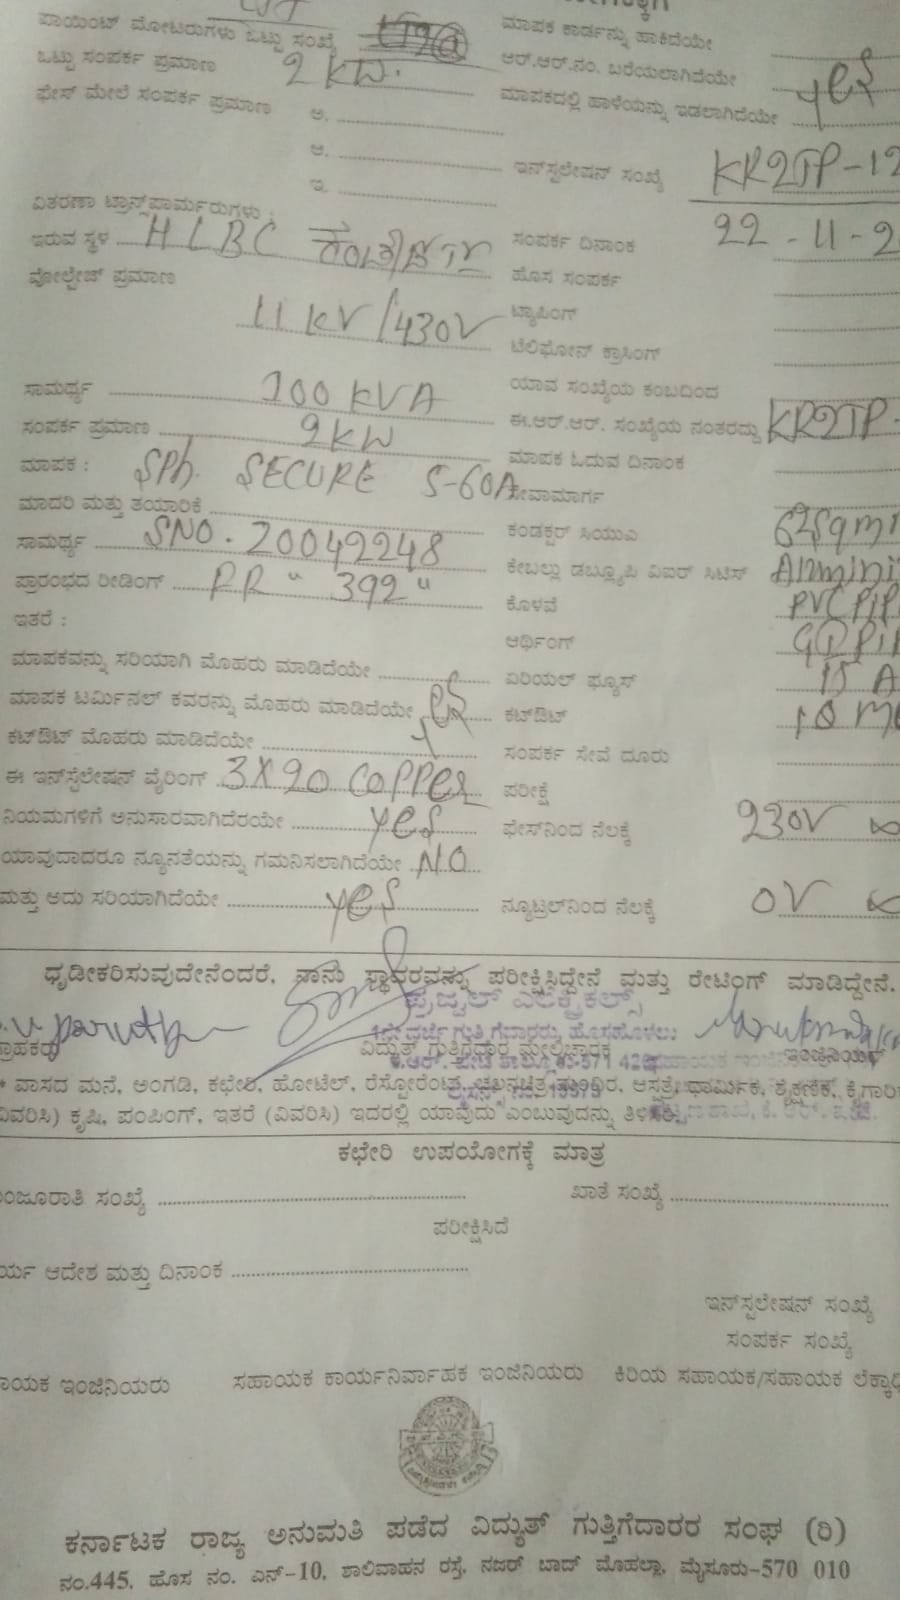 ಪಾಯಿಂಟ್ ಮೋಟರುಗಳು ಒಟ್ಟು ಸಂಖ್ಯೆ
ಒಟ್ಟು ಸಂಪರ್ಕ ಪ್ರಮಾಣ 2 KW.
ಫೇಸ್ ಮೇಲೆ ಸಂಪರ್ಕ ಪ್ರಮಾಣ ಅ.
ಆ.
ಇ.
ವಿತರಣಾ ಟ್ರಾನ್ಸ್‌ಫಾರ್ಮರುಗಳು :
ಇರುವ ಸ್ಥಳ HLBC
ವೋಲ್ಟೇಜ್ ಪ್ರಮಾಣ
11 KV/430V
ಸಾಮರ್ಥ್ಯ 100 KVA
ಸಂಪರ್ಕ ಪ್ರಮಾಣ 2KW
ಮಾಪಕ : SPh. SECURE 5-60A
ಮಾದರಿ ಮತ್ತು ತಯಾರಿಕೆ
ಸಾಮರ್ಥ್ಯ SNO. 20042248
ಪ್ರಾರಂಭದ ರೀಡಿಂಗ್ RR " 392 "
ಇತರೆ :
ಮಾಪಕವನ್ನು ಸರಿಯಾಗಿ ಮೊಹರು ಮಾಡಿದೆಯೇ
ಮಾಪಕ ಟರ್ಮಿನಲ್ ಕವರನ್ನು ಮೊಹರು ಮಾಡಿದೆಯೇ
ಕಟ್‌ಔಟ್ ಮೊಹರು ಮಾಡಿದೆಯೇ
ಈ ಇನ್‌ಸ್ಟಲೇಷನ್ ವೈರಿಂಗ್ 3X20 COPPER
ನಿಯಮಗಳಿಗೆ ಅನುಸಾರವಾಗಿದೆರಯೇ yes
ಯಾವುದಾದರೂ ನ್ಯೂನತೆಯನ್ನು ಗಮನಿಸಲಾಗಿದೆಯೇ NO
ಮತ್ತು ಅದು ಸರಿಯಾಗಿದೆಯೇ yes
ಮಾಪಕ ಕಾರ್ಡನ್ನು ಹಾಕಿದೆಯೇ
ಆರ್.ಆರ್.ನಂ. ಬರೆಯಲಾಗಿದೆಯೇ
ಮಾಪಕದಲ್ಲಿ ಹಾಳೆಯನ್ನು ಇಡಲಾಗಿದೆಯೇ yes
ಇನ್‌ಸ್ಟಲೇಷನ್ ಸಂಖ್ಯೆ KR2TP-12
ಸಂಪರ್ಕ ದಿನಾಂಕ 22-11-2
ಹೊಸ ಸಂಪರ್ಕ
ಟ್ಯಾಪಿಂಗ್
ಟೆಲಿಫೋನ್ ಕ್ರಾಸಿಂಗ್
ಯಾವ ಸಂಖ್ಯೆಯ ಕಂಬದಿಂದ
ಈ.ಆರ್.ಆರ್. ಸಂಖ್ಯೆಯ ನಂತರದ್ದು KR2TP-
ಮಾಪಕ ಓದುವ ದಿನಾಂಕ
ಸೇವಾಮಾರ್ಗ
ಕಂಡಕ್ಟರ್ ಸಿಯುಎ
ಕೇಬಲ್ಲು ಡಬ್ಲ್ಯೂಪಿ ವಿಐಆರ್ ಸಿಟಿಸ್
ಕೊಳವೆ PVC PIP
ಆರ್ಥಿಂಗ್
ಏರಿಯಲ್ ಫ್ಯೂಸ್ 15 A
ಕಟ್‌ಔಟ್
ಸಂಪರ್ಕ ಸೇವೆ ದೂರು
ಪರೀಕ್ಷೆ
ಫೇಸ್‌ನಿಂದ ನೆಲಕ್ಕೆ 230V ∞
ನ್ಯೂಟ್ರಲ್‌ನಿಂದ ನೆಲಕ್ಕೆ 0V ∞
ಧೃಡೀಕರಿಸುವುದೇನೆಂದರೆ, ನಾನು ಸ್ಥಾವರವನ್ನು ಪರೀಕ್ಷಿಸಿದ್ದೇನೆ ಮತ್ತು ರೇಟಿಂಗ್ ಮಾಡಿದ್ದೇನೆ.
ಪ್ರಜ್ವಲ್ ಎಲೆಕ್ಟ್ರಿಕಲ್ಸ್
ವಿದ್ಯುತ್ ಗುತ್ತಿಗೆದಾರ
* ವಾಸದ ಮನೆ, ಅಂಗಡಿ, ಕಛೇರಿ, ಹೋಟೆಲ್, ರೆಸ್ಟೋರೆಂಟ್, ಚಲನಚಿತ್ರ ಮಂದಿರ, ಆಸ್ಪತ್ರೆ, ಧಾರ್ಮಿಕ, ಶೈಕ್ಷಣಿಕ, ಕೈಗಾರಿ
ವಿವರಿಸಿ) ಕೃಷಿ, ಪಂಪಿಂಗ್, ಇತರೆ (ವಿವರಿಸಿ) ಇದರಲ್ಲಿ ಯಾವುದು ಎಂಬುವುದನ್ನು ತಿಳಿಸಿರಿ.
ಕಛೇರಿ ಉಪಯೋಗಕ್ಕೆ ಮಾತ್ರ
ಂಜೂರಾತಿ ಸಂಖ್ಯೆ ಖಾತೆ ಸಂಖ್ಯೆ
ಪರೀಕ್ಷಿಸಿದೆ
ರ್ಯ ಆದೇಶ ಮತ್ತು ದಿನಾಂಕ
ಇನ್‌ಸ್ಪಲೇಷನ್ ಸಂಖ್ಯೆ
ಸಂಪರ್ಕ ಸಂಖ್ಯೆ
ಾಯಕ ಇಂಜಿನಿಯರು ಸಹಾಯಕ ಕಾರ್ಯನಿರ್ವಾಹಕ ಇಂಜಿನಿಯರು ಕಿರಿಯ ಸಹಾಯಕ/ಸಹಾಯಕ ಲೆಕ್ಕಾಧಿ
ಕರ್ನಾಟಕ ರಾಜ್ಯ ಅನುಮತಿ ಪಡೆದ ವಿದ್ಯುತ್ ಗುತ್ತಿಗೆದಾರರ ಸಂಘ (ರಿ)
ನಂ.445, ಹೊಸ ನಂ. ಎನ್-10, ಶಾಲಿವಾಹನ ರಸ್ತೆ, ನಜರ್ ಬಾದ್ ಮೊಹಲ್ಲಾ, ಮೈಸೂರು-570 010